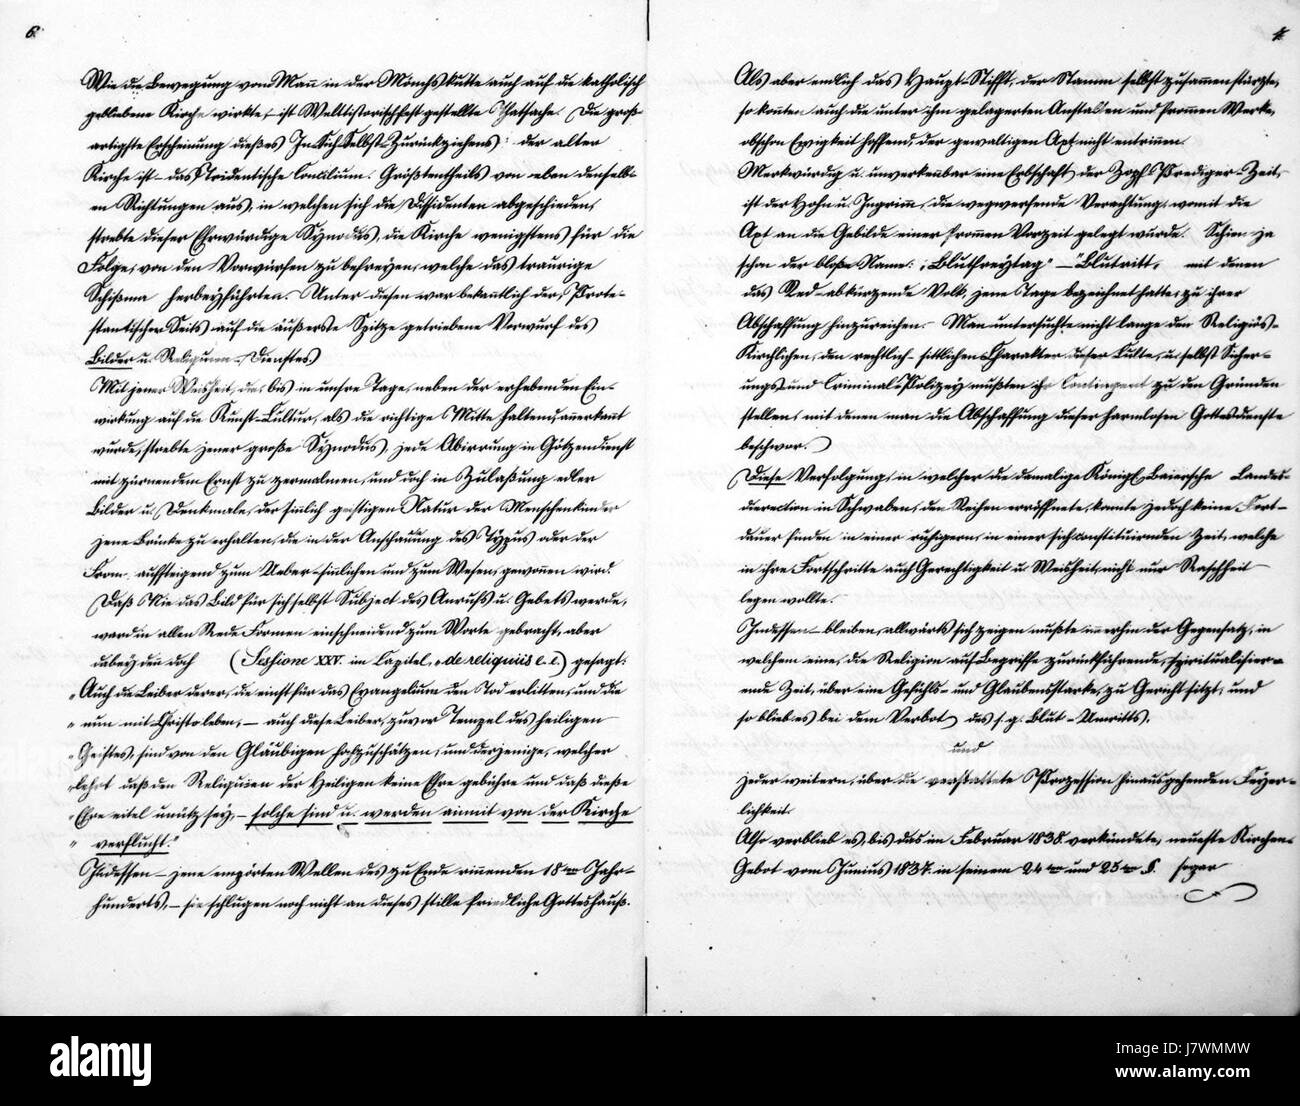 6.
Wie die Bewegung vom Mann in der Mönchskutte auch auf die katholisch
gebliebene Kirche wirkte, ist Welthistorisch festgestellte Thatsache. Die groß-
artigste Erscheinung dießes In-Sich-Selbst-Zurückziehens der alten
Kirche ist – das Tridentische Concilium. Größtentheils von eben denselb-
en Richtungen aus, in welchen sich die Dissidenten abgeschieden,
strebte dieser Ehrwürdige Synodus, die Kirche wenigstens für die
Folge, von den Vorwürfen zu befreyen, welche das traurige
Schißma herbeyführten. Unter diesen war bekantlich der, Prote-
stantischer Seits auf die äußerste Spitze getriebene Vorwurf des
Bilder u. Reliquien-Dienstes
Mit jener Weisheit, die bis in unsre Tage, neben der erhebenden Ein-
wirkung auf die Kunst-Cultur, als die richtige Mitte haltend, anerkannt
wurde, strebte jener große Synodus, jede Abirrung in Götzendienst
mit zürnendem Ernst zu zermalmen, und doch in Zulaßung edler
Bilder u. Denkmale, der sinlich geistigen Natur der Menschenkinder
jene Brücke zu erhalten, die in der Anschauung des Typus oder der
Form, aufsteigend zum Ueber-sinlichen und zum Wesen, gewonnen wird.
Daß Nie das Bild für sich selbst Subject des Anrufs u. Gebets werde,
ward in allen Rede Formen einschneidend zum Worte gebracht, aber
dabey den doch (Sessione XXV. im Capitel, „de reliquiis e. c.) gesagt:
„Auch die Leiber derer, die einst für das Evangelium den Tod erlitten, und die
„nun mit Christo leben, – auch diese Leiber, zuvor Tempel des heiligen
„Geistes, sind von den Gläubigen hochzuschätzen, und derjenige, welcher
„lehrt daß den Reliquien der Heiligen keine Ehre gebühre und daß dieße
„Ehre eitel unütz sey, – solche sind u. werden anmit von der Kirche
„verflucht.“
Indessen – jene empörten Wellen des zu Ende rinnenden 18ten Jahr-
hunderts, – sie schlugen noch nicht an dieses stille friedliche Gotteshauß.
Als aber endlich das Haupt-Stifft, der Stamm selbst zusammenstürzte,
so konten auch die unter ihm gelagerten Anstalten und frommen Werke,
obschon Ewigkeit hoffend, der gewaltigen Axt nicht entrinnen.
Merkwürdig u. unverkenbar eine Erbschaft der Zopf-Prediger-Zeit,
ist der Hohn u. Ingrimm, die wegwerfende Verachtung, womit die
Axt an die Gebilde einer frommen Vorzeit gelegt wurde. Schien ja
schon der bloße Name: „Blutfreytag“ – „Blutritt“, mit denen
das Red-abkürzende Volk, jene Tage bezeichnet hatte, zu ihrer
Abschaffung hinzureichen. Man untersuchte nicht lange den Religiös-
Kirchlichen, den rechtlich sittlichen Charakter dieser Culte, u. selbst Sicher-
ungs- und Criminal-Polizey mußten ihr Contingent zu den Gründen
stellen, mit denen man die Abschaffung dieser harmlosen Gottesdienste
beschwor.
Diese Verfolgung, in welcher die damalige Königl. Baiersche Landes-
direction in Schwaben, den Reihen eröffnete, konnte jedoch keine Fort-
dauer finden in einer ruhigern, in einer sich constituirenden Zeit, welche
in ihre Fortschritte auch Gerechtigkeit u. Weisheit, nicht nur Raschheit
legen wollte.
Indessen – bleiben, allwärts sich zeigen mußte immerhin der Gegensatz, in
welchem eine, die Religion auf Begriffe zurückführende, spiritualisier-
ende Zeit, über eine Gefühls- und Glaubensstarke, zu Gericht sitzt, und
so blieb es bei dem Verbot des s. g. Blut-Umritts,
und
jeder weitern, über die verstattete Prozession hinausgehenden Feyer-
lichkeit.
Also verblieb es, bis das im Februar 1838. verkündete, neueste Kirchen-
Gebot vom Junius 1837. in seinem 24ten und 25ten §. sogar
alamy
Image ID: J7WMMW
www.alamy.com